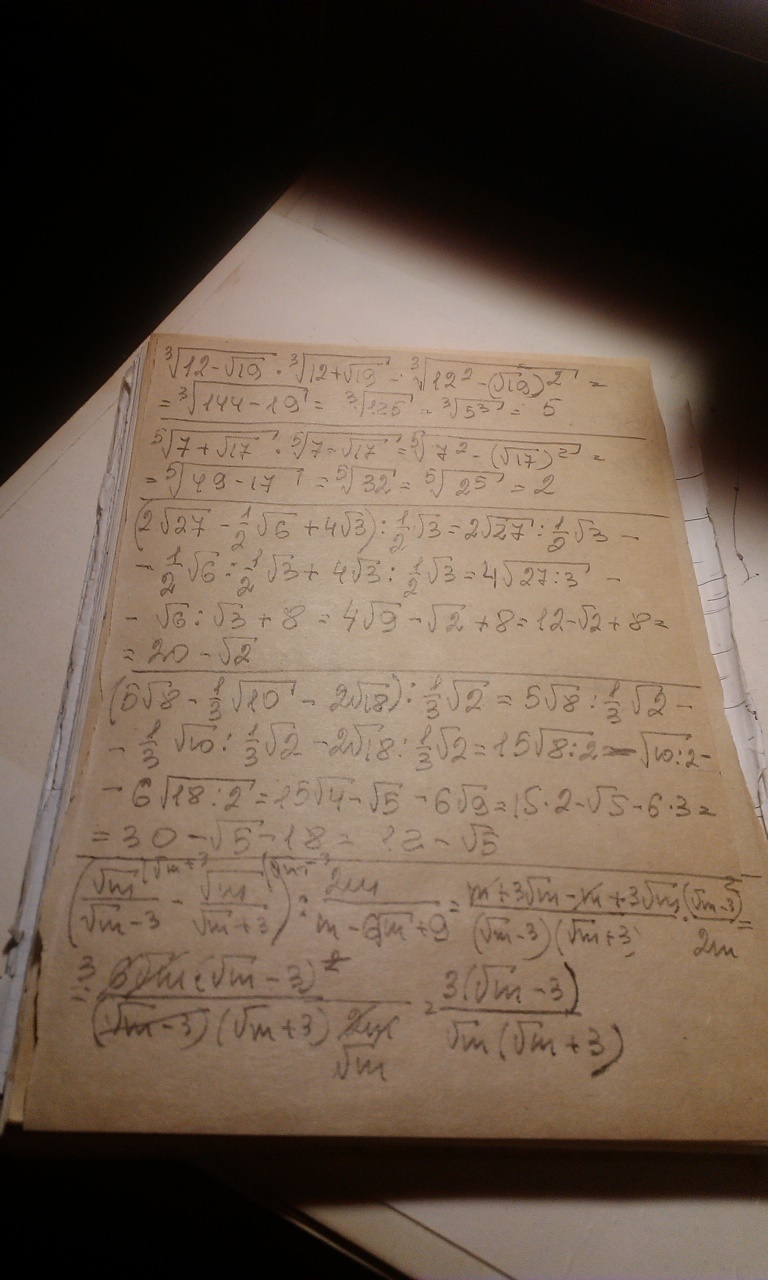 ∛(12-√19) · ∛(12+√19) = ∛(12² - (√19)²) =
= ∛(144-19) = ∛125 = ∛5³ = 5
⁵√(7+√17) · ⁵√(7-√17) = ⁵√(7² - (√17)²) =
= ⁵√(49-17) = ⁵√32 = ⁵√2⁵ = 2
(2√27 - 1/2√6 + 4√3) : 1/2√3 = 2√27 : 1/2√3 -
- 1/2√6 : 1/2√3 + 4√3 : 1/2√3 = 4√(27:3) -
- √6 : √3 + 8 = 4√9 - √2 + 8 = 12 - √2 + 8 =
= 20 - √2
(5√8 - 1/3√10 - 2√18) : 1/3√2 = 5√8 : 1/3√2 -
- 1/3√10 : 1/3√2 - 2√18 : 1/3√2 = 15√(8:2) - √(10:2) -
- 6√(18:2) = 15√4 - √5 - 6√9 = 15·2 - √5 - 6·3 =
= 30 - √5 - 18 = 12 - √5
(√m/(√m-3) (√m+3 - √m/(√m+3) (√m-3) : 2m/(m-6√m+9) = (m+3√m-m+3√m)/((√m-3)(√m+3)) · (√m-3)²/2m =
= 3 6√m·(√m-3)²/((√m-3)(√m+3) 2m √m) = 3(√m-3)/(√m(√m+3))